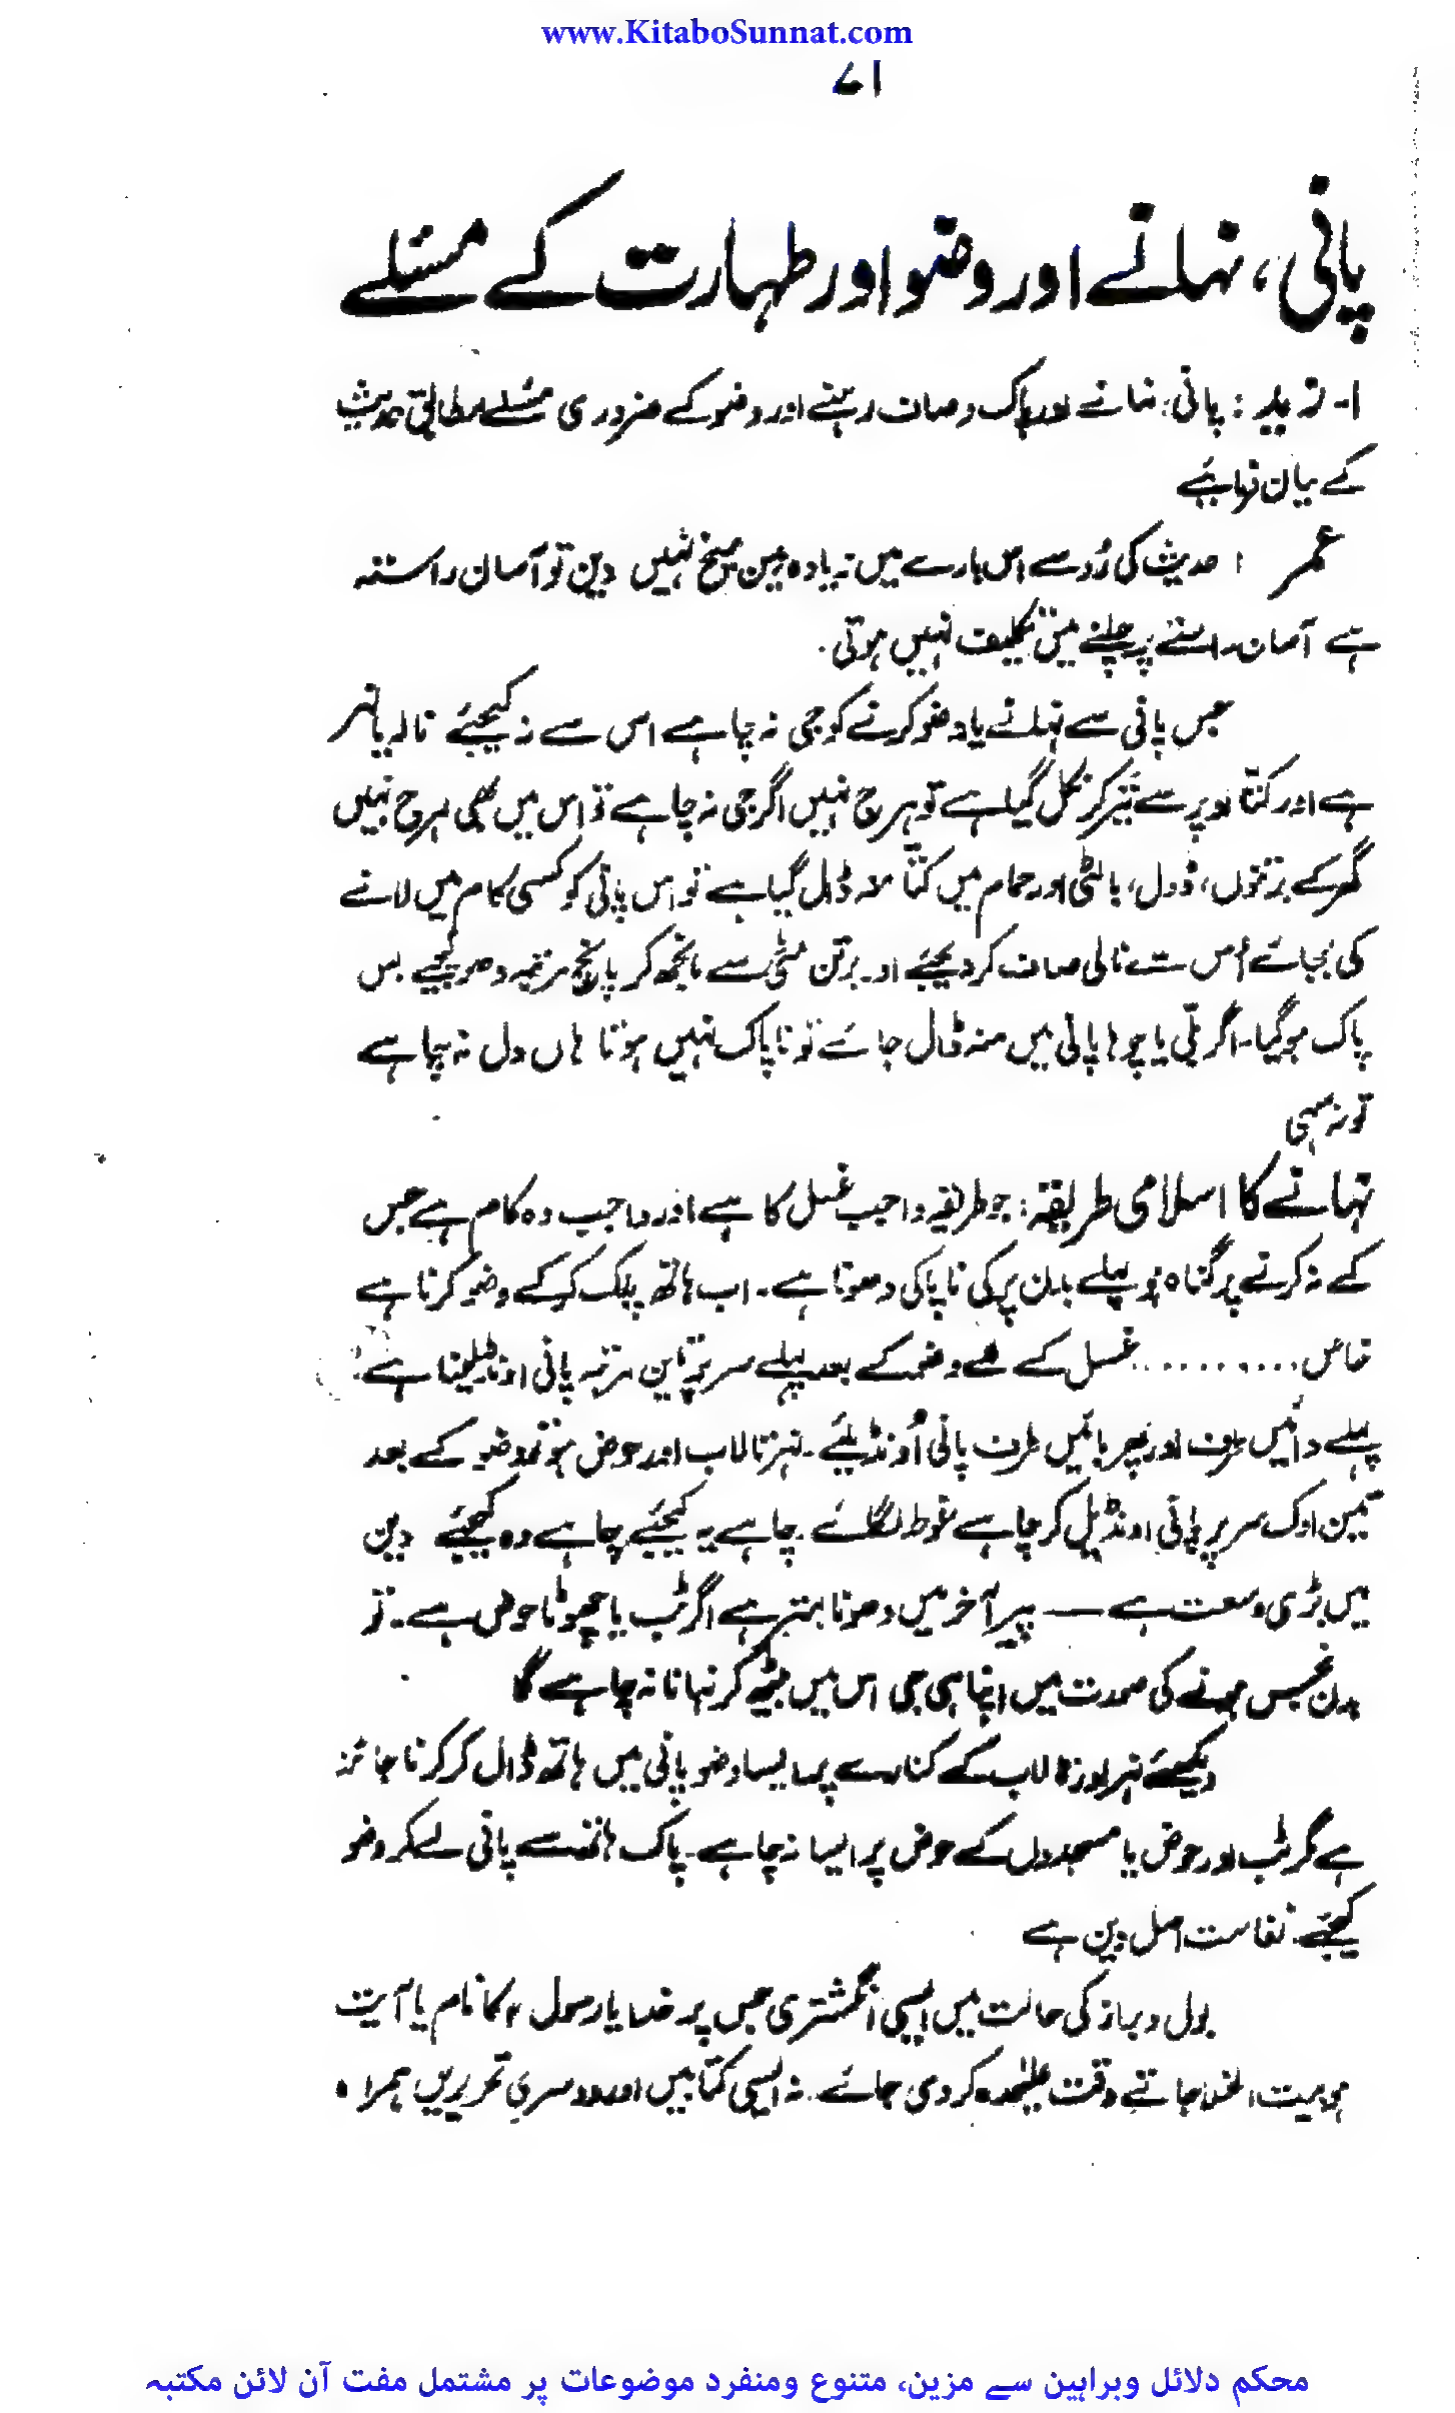 www.KitaboSunnat.com
۷۱
پانی، نہانے اور وضو اور طہارت کے مسئلے
۱- زید : پانی، نہانے اور پاک وصاف رہنے اور وضو کے ضروری مسئلے مطابق حدیث
کے بیان فرمائیے
عمر : حدیث کی رُو سے اس بارے میں زیادہ مین میخ نہیں دین تو آسان راستہ
ہے آسان راستے پر چلنے میں تکلیف نہیں ہوتی.
جس پانی سے نہانے یا وضو کرنے کو جی نہ چاہے اس سے نہ کیجئے نالہ یا نہر
ہے اور کتّا اوپر سے تیر کر نکل گیا ہے تو ہرج نہیں اگر جی نہ چاہے تو اس میں بھی ہرج نہیں
گھر کے برتنوں، ڈول، بالٹی اور حمام میں کتّا منہ ڈال گیا ہے تو اس پانی کو کسی کام میں لانے
کی بجائے اُس سے نالی صاف کر دیجئے اور برتن مٹی سے مانجھ کر پانچ مرتبہ دھو لیجیے بس
پاک ہوگیا۔ اگر بلّی یا چوہا پانی میں منہ ڈال جائے تو ناپاک نہیں ہوتا ہاں دل نہ چاہے
تو نہ سہی
نہانے کا اسلامی طریقہ: جو طریقہ واجب غسل کا ہے اور واجب وہ کام ہے جس
کے نہ کرنے پر گناہ ہو پہلے بدن پر کی ناپاکی دھونا ہے۔ اب ہاتھ پاک کر کے وضو کرنا ہے
خاص .......... غسل کے لئے وضو کے بعد پہلے سر پر تین مرتبہ پانی اونڈیلنا ہے
پہلے دائیں طرف اور پھر بائیں طرف پانی اُونڈیلئے۔ نہر تالاب اور حوض ہو تو وضو کے بعد
تین اوک سر پر پانی اونڈیل کر چاہے غوطہ لگائے چاہے یہ کیجئے چاہے وہ کیجئے دین
میں بڑی وسعت ہے — پیر آخر میں دھونا بہتر ہے اگر ٹب یا چھوٹا حوض ہے۔ تو
بدن نجس ہونے کی صورت میں اپنا ہی جی اس میں بیٹھ کر نہانا نہ چاہے گا
دیکھئے نہر اور تالاب کے کنارے پر ایسا وضو پانی میں ہاتھ ڈال کر کرنا جائز
ہے مگر ٹب اور حوض یا مسجدوں کے حوض پر ایسا نہ چاہے۔ پاک ہاتھ سے پانی لے کر وضو
کیجئے نفاست اصل دین ہے
بول و براز کی حالت میں ایسی انگشتری جس پر خدا یا رسول کا نام یا آیت
ہو بیت الخلا جاتے وقت علیٰحدہ کر دی جائے۔ نہ ایسی کتابیں اور دوسری تحریریں ہمراہ
محکم دلائل وبراہین سے مزین، متنوع ومنفرد موضوعات پر مشتمل مفت آن لائن مکتبہ